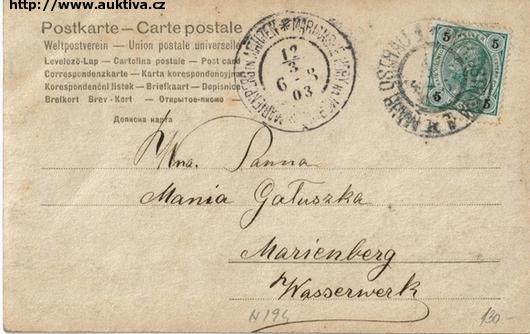 http://www.auktiva.cz
Postkarte - Carte postale
Weltpostverein - Union postale universelle
Levelező-Lap - Cartolina postale - Post card
Correspondenzkarte - Karta korespondencyjna
Korespondenční listek - Briefkaart - Dopisnice
Brefkort Brev-Kort - Открытое-письмо
Дописна карта
12
3
6-8
03
5 5
5 5
Wna. Panna
Mania Gałuszka
Marienberg
Wasserwerk
N194
130-